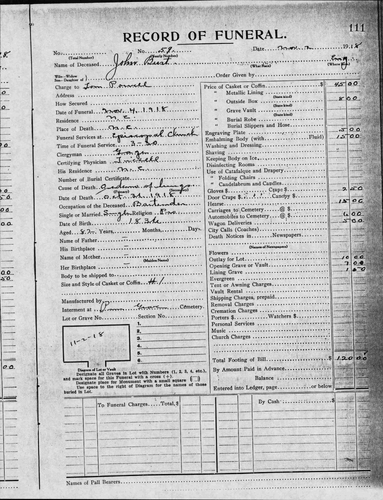 111
RECORD OF FUNERAL.
No. No. 59 Date Nov. 2 1918
(Total Number) (Yearly Number)
Name of Deceased John Burt Eng.
(What Race) (Where Born)
Charge to Tom Powell Order Given by
Address
How Secured
Date of Funeral Nov. 4, 1918
Residence N.C.
Place of Death N.C.
Funeral Services at Episcopal Church
Time of Funeral Service 3-30
Clergyman
Certifying Physician
His Residence N.C.
Number of Burial Certificate
Cause of Death
Date of Death Oct. 31, 1918
Occupation of the Deceased Bartender
Single or Married Single Religion
Date of Birth 1836
Aged 82 Years, Months, Days
Name of Father
His Birthplace
Name of Mother
(Maiden Name)
Her Birthplace
Body to be shipped to
Size and Style of Casket or Coffin #1
Manufactured by
Interment at Cemetery.
Lot or Grave No. Section No.
1.
2.
3.
4.
5.
6.
11-2-18
Diagram of Lot or Vault
Designate all Graves in Lot with Numbers (1, 2, 3, 4, etc.),
and mark space for this Funeral with a cross (+).
Designate place for Monument with a small square
Use space to right of Diagram for the names of those
buried in Lot.
Price of Casket or Coffin 45 00
" Metallic Lining
" Outside Box 8 00
" Grave Vault
" Burial Robe
" Burial Slippers and Hose
Engraving Plate 5 00
Embalming Body (with Fluid) 15 00
Washing and Dressing
Shaving
Keeping Body on Ice
Disinfecting Rooms
Use of Catafalque and Drapery
" Folding Chairs
" Candelabrum and Candles
Gloves $ Crape $ 2 50
Door Crape $
Hearse 15 00
Carriages to Cemetery @ $
Automobiles to Cemetery @ $
Wagon Deliveries
City Calls (Coaches)
Death Notices in Newspapers
Flowers
Outlay for Lot 10 00
Opening Grave or Vault
Lining Grave
Evergreen
Tent or Awning Charges
Vault Rental
Shipping Charges, prepaid
Removal Charges
Cremation Charges
Porters $ Watchers $
Personal Services
Music
Church Charges
Total Footing of Bill 120 00
By Amount Paid in Advance
Balance
Entered into Ledger, page or below
To Funeral Charges By Cash
Names of Pall Bearers